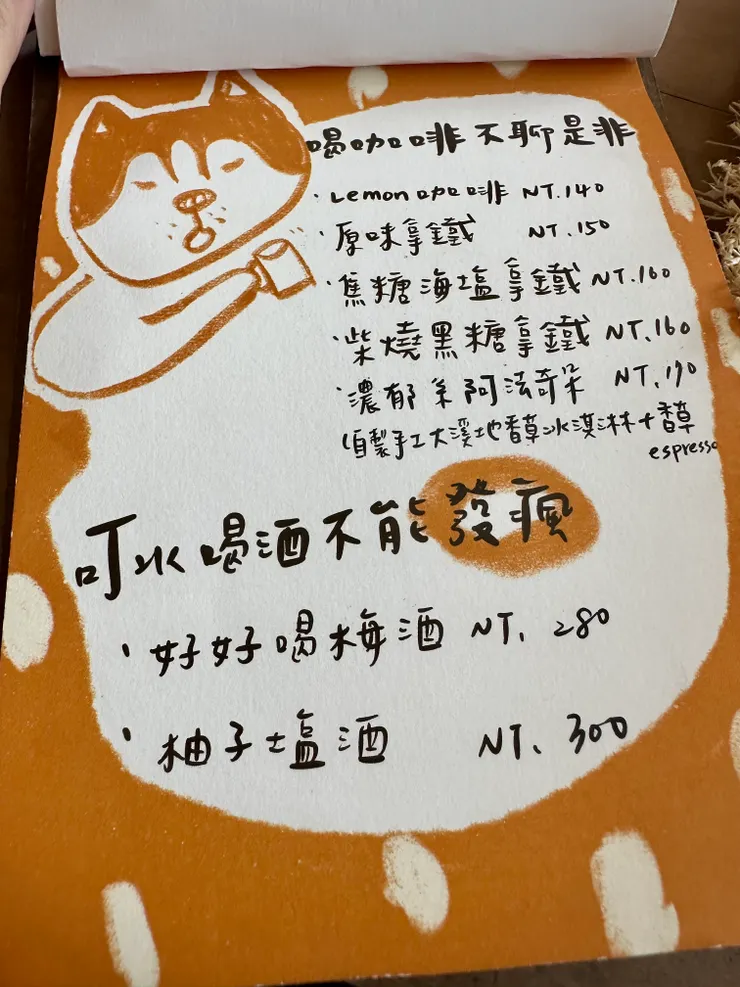 喝咖啡不聊是非
·Lemon咖啡 NT.140
·原味拿鐵 NT.150
·焦糖海塩拿鐵 NT.160
·柴燒黑糖拿鐵 NT.160
·濃郁系阿法奇朵 NT.190
(自製手工大溪地香草冰淇淋+香草
espresso
叮水喝酒不能發瘋
·好好喝梅酒 NT. 280
·柚子塩酒 NT. 300